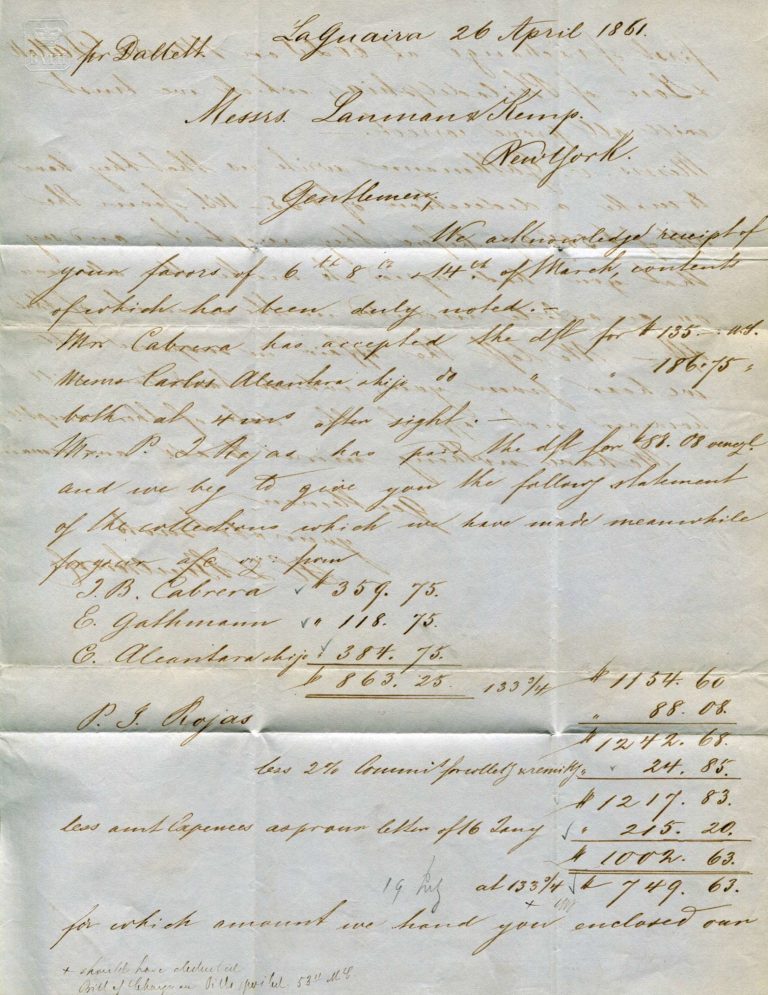 pr Dallett. LaGuaira 26 April 1861.
Messrs. Lanman & Kemp.
New York.
Gentlemen,
We acknowledge receipt of
your favors of 6th 8th & 14th of March, contents
of which has been duly noted. -
Mr. Cabrera has accepted the dft for $ 135 -
Carlos Alcantara ship do " " 186.75 "
both at 4 ms after sight. -
Mr. P. J. Rojas has paid the dft for $ 88.08
and we beg to give you the followg statement
of the collections which we have made meanwhile
for your a/c from
J. B. Cabrera $ 359. 75.
E. Gathmann " 118. 75.
C. Alcantara ship " 384. 75.
$ 863. 25. 133 3/4 $ 1154. 60
P. J. Rojas " 88. 08.
$ 1242. 68.
less 2% Commis for collectg & remittg " 24. 85.
$ 1217. 83.
less amt Expences as pr our letter of 16 Jany " 215. 20.
$ 1002. 63.
19 at 133 3/4 $ 749. 63.
for which amount we hand you enclosed our
+ should have deducted
Bill of